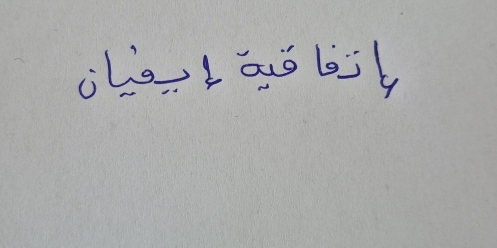 إتفاقية إيفيان